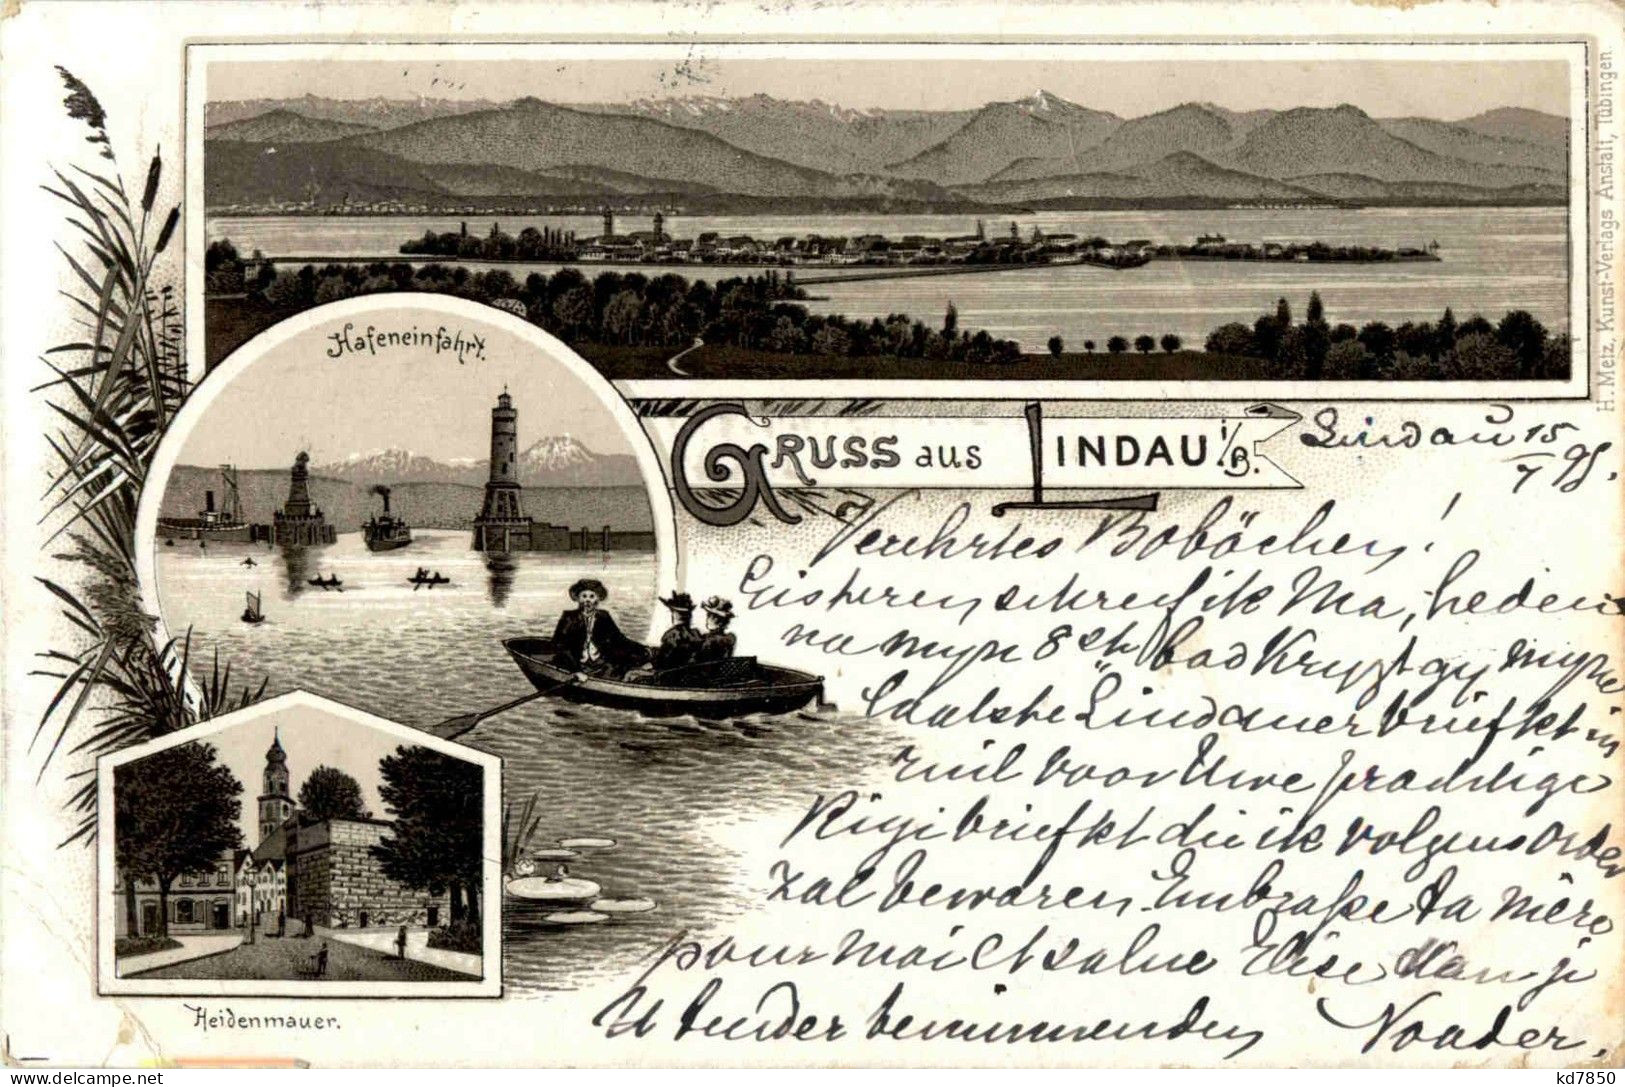 H. Metz, Kunst-Verlags Anstalt, Tübingen.
Hafeneinfahrt.
GRUSS aus LINDAU i/B.
Lindau 15/7 98.
Verehrtes Boböchen!
Gisteren schreef ik Ma, heden
na myn 8ste bad krygt gy myne
laatste Lindauer briefkt in
ruil voor Uwe prachtige
Rigibriefkt die ik volgens Order
zal bewaren. Embrasse ta mère
pour moi et salue Elise van je
U teeder beminnenden Vader.
Heidenmauer.
kd7850